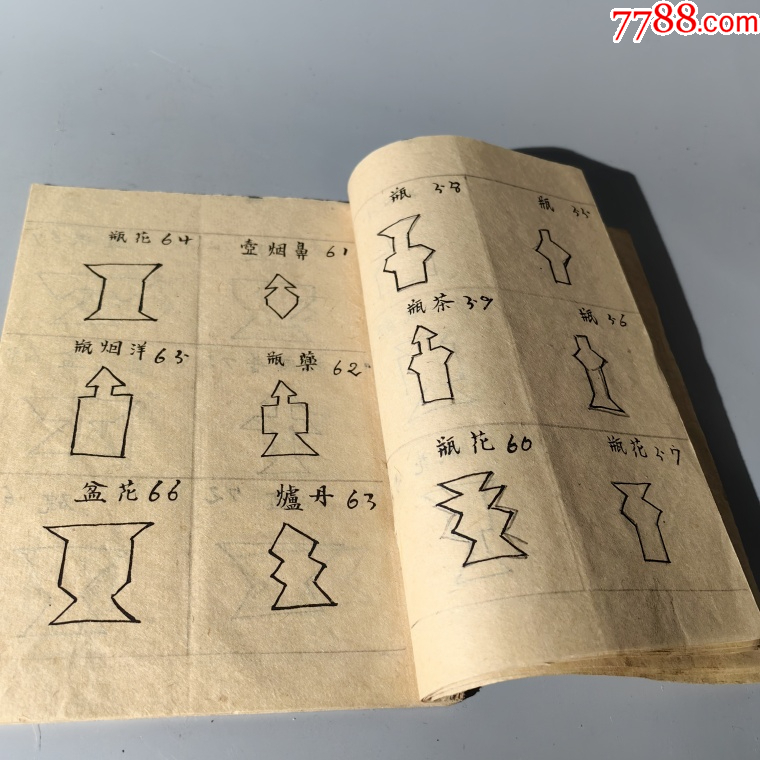 7788.com
瓶 55
瓶 56
瓶花 57
瓶 58
瓶茶 59
瓶花 60
壺烟鼻 61
瓶藥 62
爐丹 63
瓶花 64
瓶烟洋 65
盆花 66